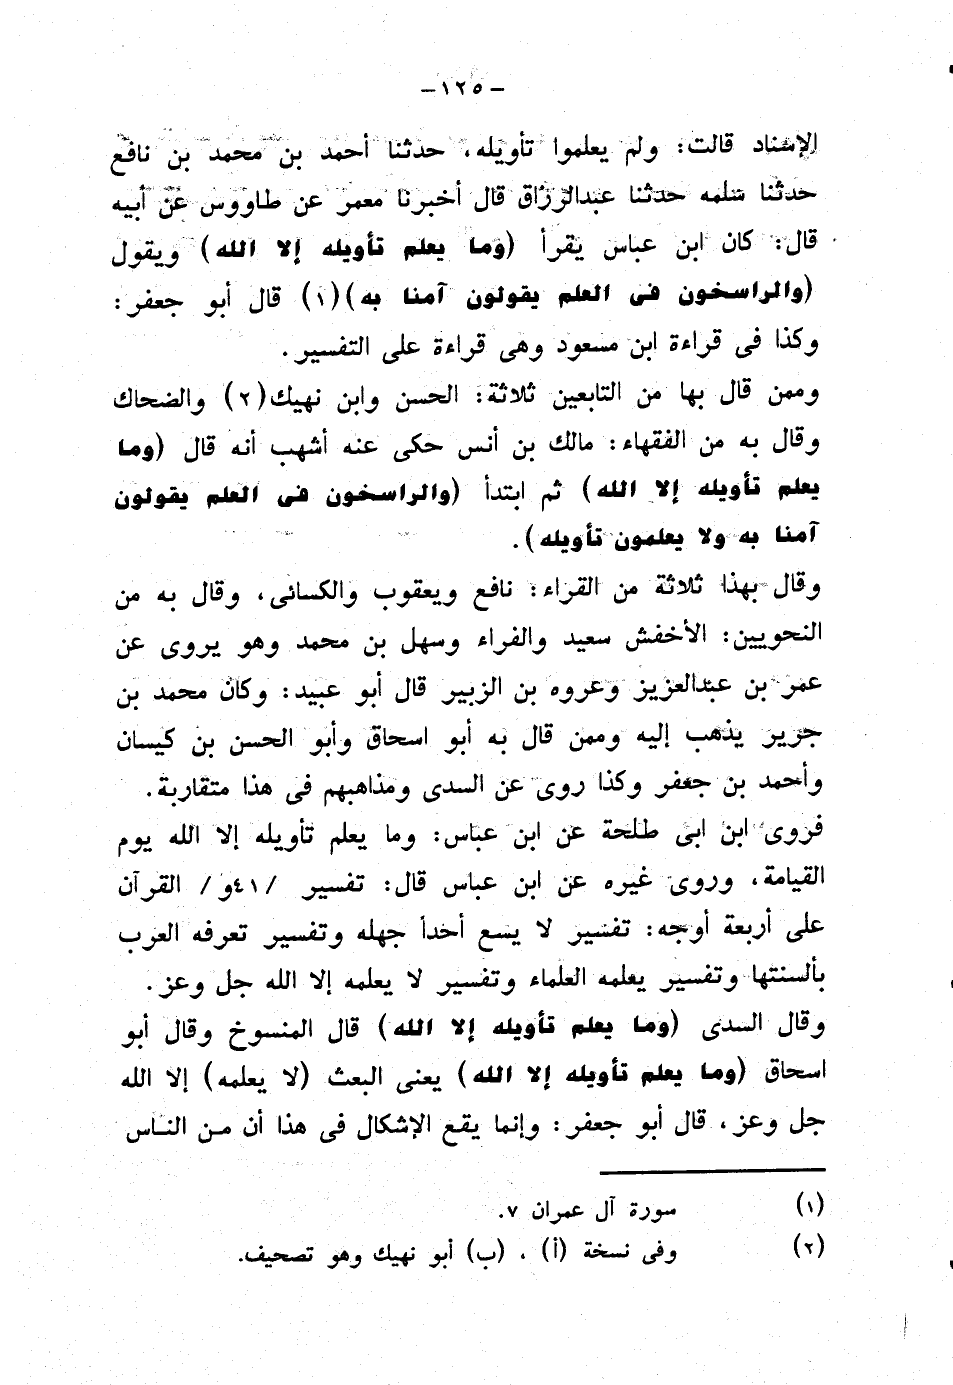 -١٢٥-
الإسناد قالت: ولم يعلموا تأويله، حدثنا أحمد بن محمد بن نافع
حدثنا سلمه حدثنا عبدالرزاق قال أخبرنا معمر عن طاووس عن أبيه
قال: كان ابن عباس يقرأ (وما يعلم تأويله إلا الله) ويقول
(والراسخون فى العلم يقولون آمنا به)(١) قال أبو جعفر:
وكذا فى قراءة ابن مسعود وهى قراءة على التفسير.
وممن قال بها من التابعين ثلاثة: الحسن وابن نهيك(٢) والضحاك
وقال به من الفقهاء: مالك بن أنس حكى عنه أشهب أنه قال (وما
يعلم تأويله إلا الله) ثم ابتدأ (والراسخون فى العلم يقولون
آمنا به ولا يعلمون تأويله).
وقال بهذا ثلاثة من القراء: نافع ويعقوب والكسائى، وقال به من
النحويين: الأخفش سعيد والفراء وسهل بن محمد وهو يروى عن
عمر بن عبدالعزيز وعروه بن الزبير قال أبو عبيد: وكان محمد بن
جرير يذهب إليه وممن قال به أبو اسحاق وأبو الحسن بن كيسان
وأحمد بن جعفر وكذا روى عن السدى ومذاهبهم فى هذا متقاربة.
فروى ابن ابى طلحة عن ابن عباس: وما يعلم تأويله إلا الله يوم
القيامة، وروى غيره عن ابن عباس قال: تفسير /٤١و/ القرآن
على أربعة أوجه: تفسير لا يسع أحداً جهله وتفسير تعرفه العرب
بألسنتها وتفسير يعلمه العلماء وتفسير لا يعلمه إلا الله جل وعز.
وقال السدى (وما يعلم تأويله إلا الله) قال المنسوخ وقال أبو
اسحاق (وما يعلم تأويله إلا الله) يعنى البعث (لا يعلمه) إلا الله
جل وعز، قال أبو جعفر: وإنما يقع الإشكال فى هذا أن من الناس
(١) سورة آل عمران ٧.
(٢) وفى نسخة (أ) ، (ب) أبو نهيك وهو تصحيف.